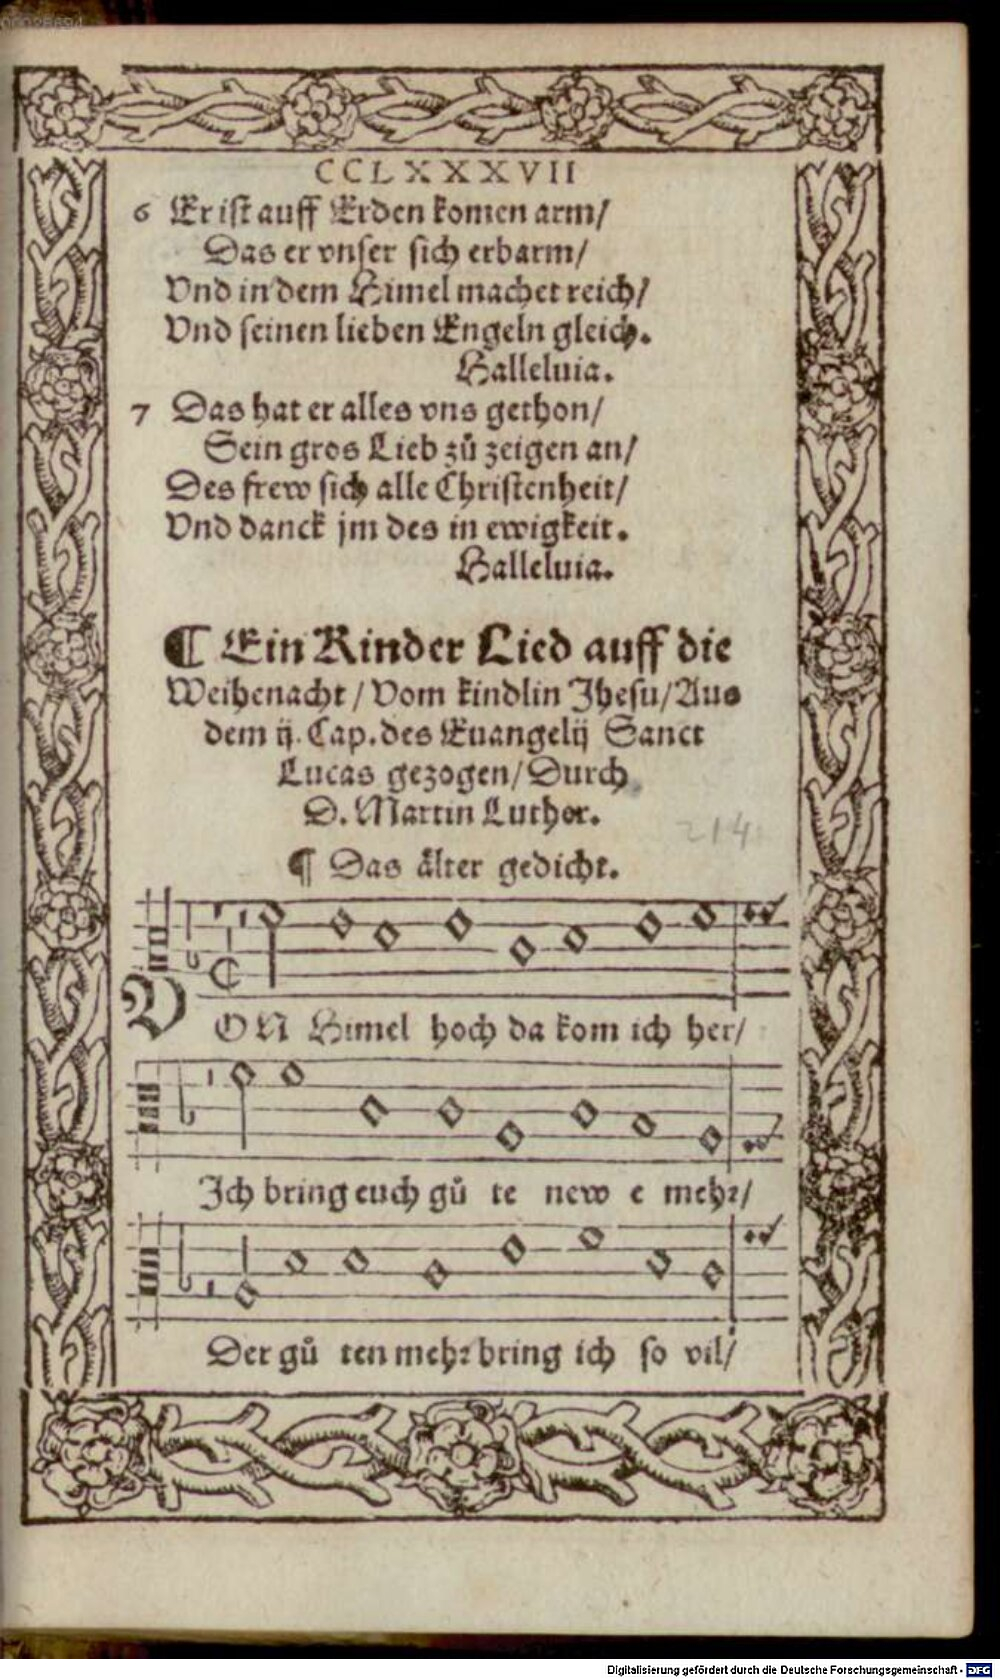 00026694
CCLXXXVII
6 Er ist auff Erden komen arm/
Das er vnser sich erbarm/
Vnd in dem Himel machet reich/
Vnd seinen lieben Engeln gleich.
Halleluia.
7 Das hat er alles vns gethon/
Sein gros Lieb zů zeigen an/
Des frew sich alle Christenheit/
Vnd danck jm des in ewigkeit.
Halleluia.
¶ Ein Kinder Lied auff die
Weihenacht / Vom kindlin Jhesu / Aus
dem ij. Cap. des Euangelij Sanct
Lucas gezogen / Durch
D. Martin Luther.
214
¶ Das ålter gedicht.
VON Himel hoch da kom ich her/
Ich bring euch gů te new e mehꝛ/
Der gů ten mehꝛ bring ich so vil/
Digitalisierung gefördert durch die Deutsche Forschungsgemeinschaft - DFG